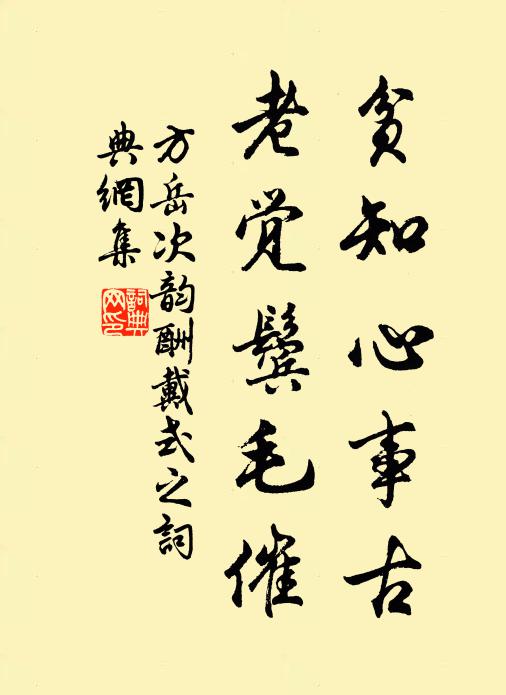 贫知心事古
老觉鬓毛催
方岳次韵酬戴式之词
典網集
詞典網印